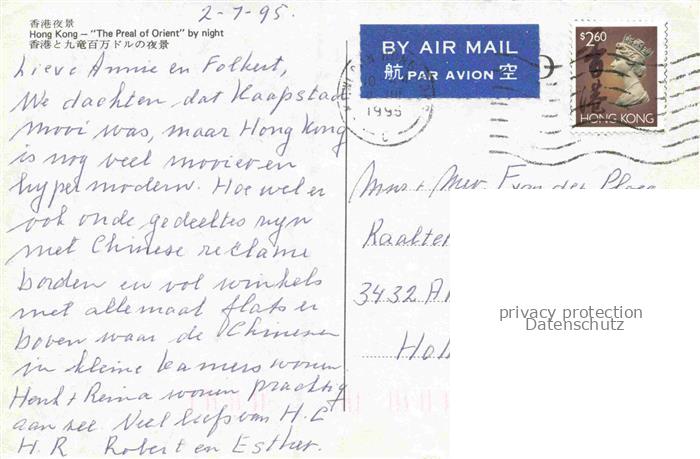 2-7-95.
香港夜景
Hong Kong – "The Preal of Orient" by night
香港と九竜百万ドルの夜景
Lieve Annie en Folkert,
We dachten dat Kaapstad
mooi was, maar Hong Kong
is nog veel mooier en
hypermodern. Hoewel er
ook oude gedeeltes zijn
met Chinese reclame
borden en vol winkels
met allemaal flats er
boven waar de Chinezen
in kleine kamers wonen
Henk + Reina wonen prachtig
aan zee. Veel liefs van H.C
H.R Robert en Esther.
BY AIR MAIL
航 PAR AVION 空
1995
$2.60
香港
HONG KONG
Mnr + Mevr. F van der Ploeg
Raalte
3432 A
Hol
privacy protection
Datenschutz